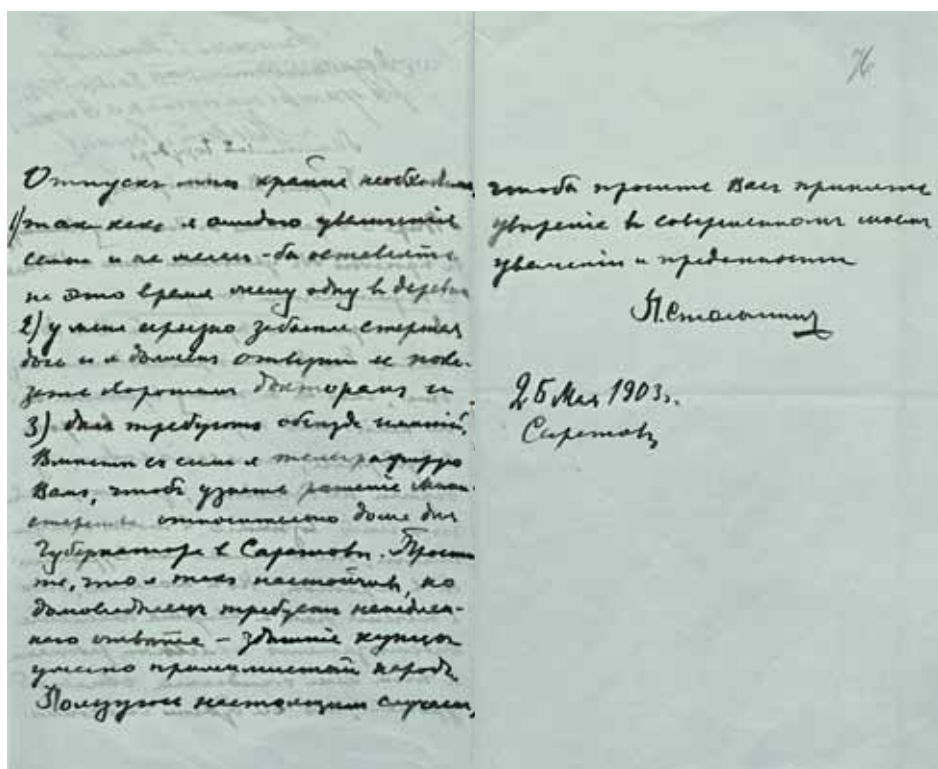 76
Отпускъ мнѣ крайне необходимъ,
1) такъ какъ я ожидаю увеличенія
семьи и не желалъ-бы оставлять
на это время жену одну въ деревнѣ
2) у меня серьезно заболѣла старшая
дочь и я долженъ отвезти ее пока-
зать хорошимъ докторамъ и
3) дѣла требуютъ объѣзда имѣній.
Вмѣстѣ съ симъ я телеграфирую
Вамъ, чтобъ узнать рѣшеніе Мини-
стерства относительно дома для
Губернатора в Саратовѣ. Прости-
те, что я такъ настойчивъ, но
домовладѣлецъ требуетъ немедлен-
наго отвѣта – здѣшніе купцы
ужасно прижимистый народъ
Пользуюсь настоящимъ случаемъ,
чтобы просить Васъ принять
увѣреніе въ совершенномъ моемъ
уваженіи и преданности
П. Столыпинъ
25 Мая 1903 г.
Саратовъ